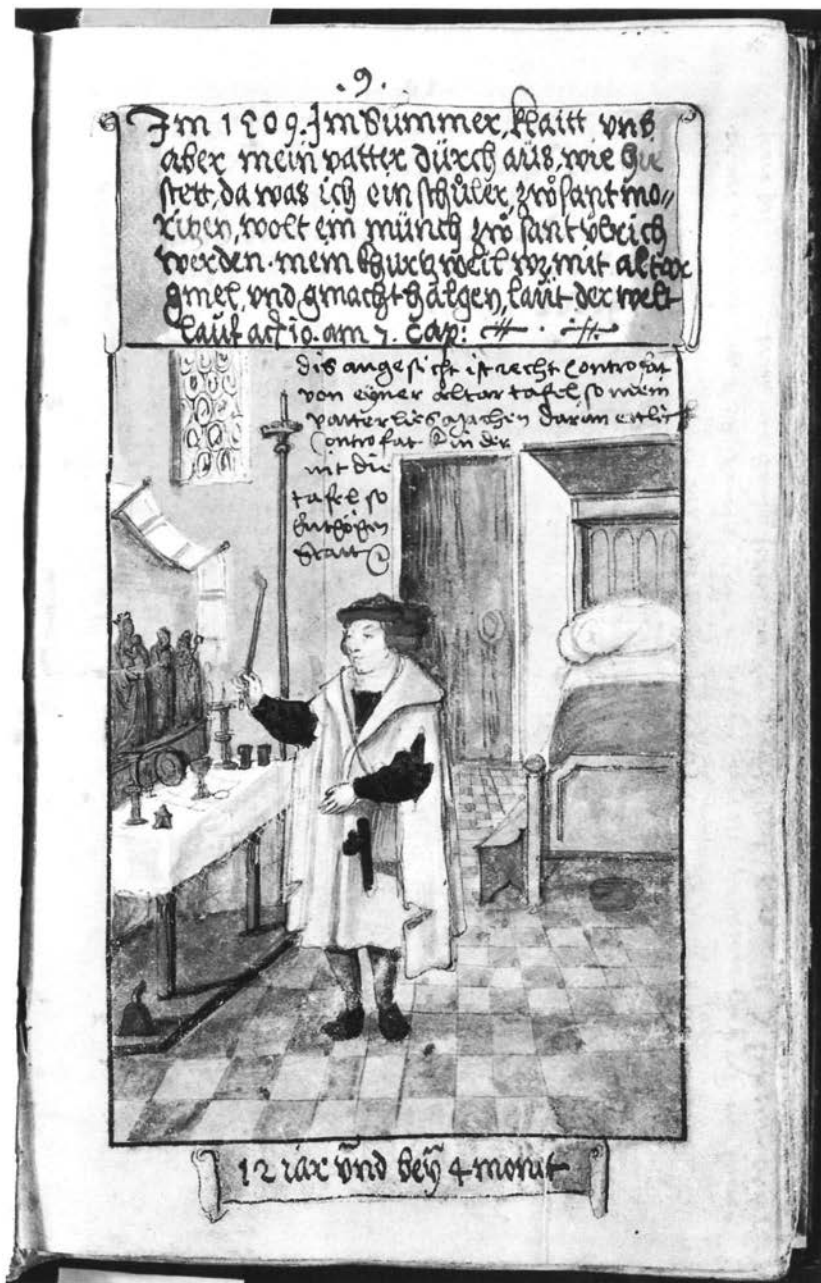 .9.
Im 1509. Im Summer, klaitt vns
aber mein vatter dürch aüs, wie hie
stett, da was ich ein schůler, zů sant mo⸗
ritzen, wolt ein münch zů sant vlrich
werden. mein khurtzweil wz mit altar
gmel, vnd gmacht hälgen, laüt der welt
lauf actio. am 7. cap:
dis angesicht ist recht Controfat
von eyner altar tafel, so mein
vatter lies machen daran etlich
Controfat in der
mit die
tafel so
12 iar vnd beÿ 4 monit